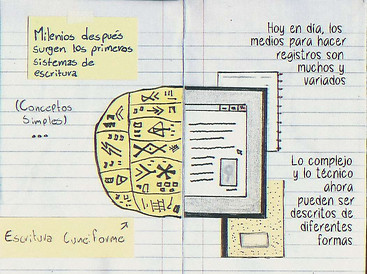 Milenios después
surgen los primeros
sistemas de
escritura
(Conceptos
Simples)
...
Escritura Cuneiforme
Hoy en día, los
medios para hacer
registros son
muchos y
variados
Lo complejo
y lo técnico
ahora
pueden ser
descritos de
diferentes
formas